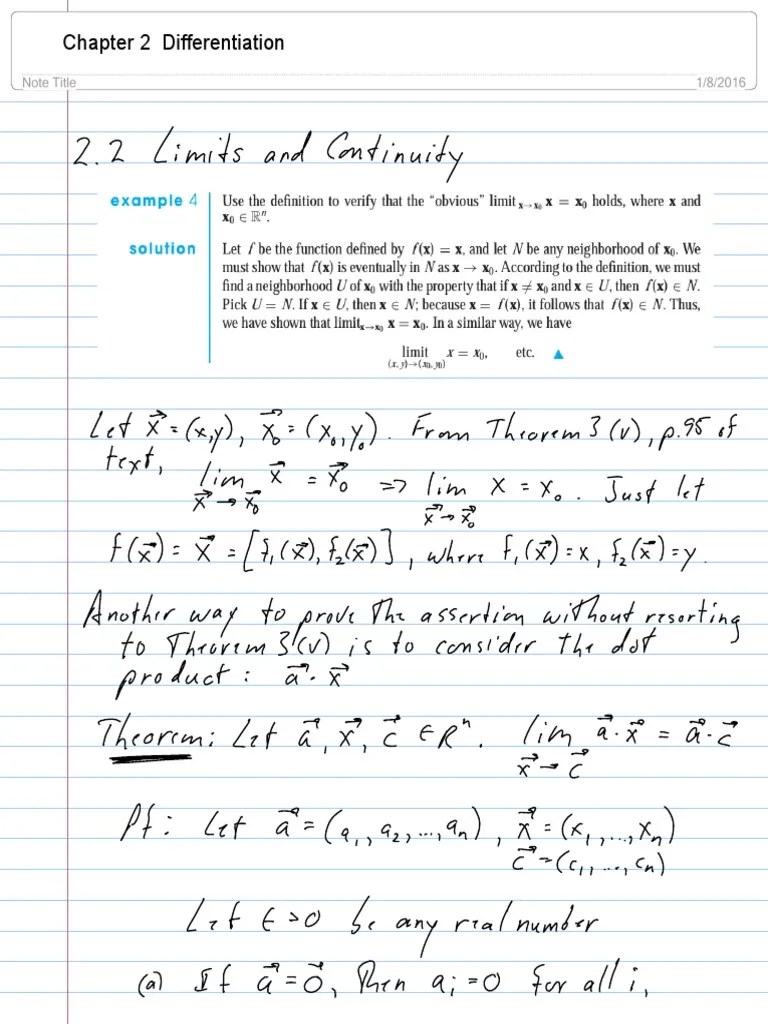 Chapter 2 Differentiation
Note Title 1/8/2016
2.2 Limits and Continuity
example 4 Use the definition to verify that the “obvious” limit x→x₀ x = x₀ holds, where x and
x₀ ∈ ℝⁿ.
solution Let f be the function defined by f(x) = x, and let N be any neighborhood of x₀. We
must show that f(x) is eventually in N as x → x₀. According to the definition, we must
find a neighborhood U of x₀ with the property that if x ≠ x₀ and x ∈ U, then f(x) ∈ N.
Pick U = N. If x ∈ U, then x ∈ N; because x = f(x), it follows that f(x) ∈ N. Thus,
we have shown that limit x→x₀ x = x₀. In a similar way, we have
limit x = x₀, etc. ▲
(x, y)→(x₀, y₀)
Let x⃗ = (x,y), x⃗₀ = (x₀,y₀). From Theorem 3(v), p.95 of
text, lim x⃗ = x⃗₀ => lim x = x₀. Just let
x⃗→x⃗₀ x⃗→x⃗₀
f(x⃗) = x⃗ = [f₁(x⃗), f₂(x⃗)], where f₁(x⃗) = x, f₂(x⃗) = y.
Another way to prove the assertion without resorting
to Theorem 3(v) is to consider the dot
product: a⃗·x⃗
Theorem: Let a⃗, x⃗, c⃗ ∈ Rⁿ. lim a⃗·x⃗ = a⃗·c⃗
x⃗→c⃗
Pf: Let a⃗ = (a₁, a₂, ..., aₙ), x⃗ = (x₁, ..., xₙ)
c⃗ = (c₁, ..., cₙ)
Let ε > 0 be any real number
(a) If a⃗ = 0⃗, Then aᵢ = 0 for all i,